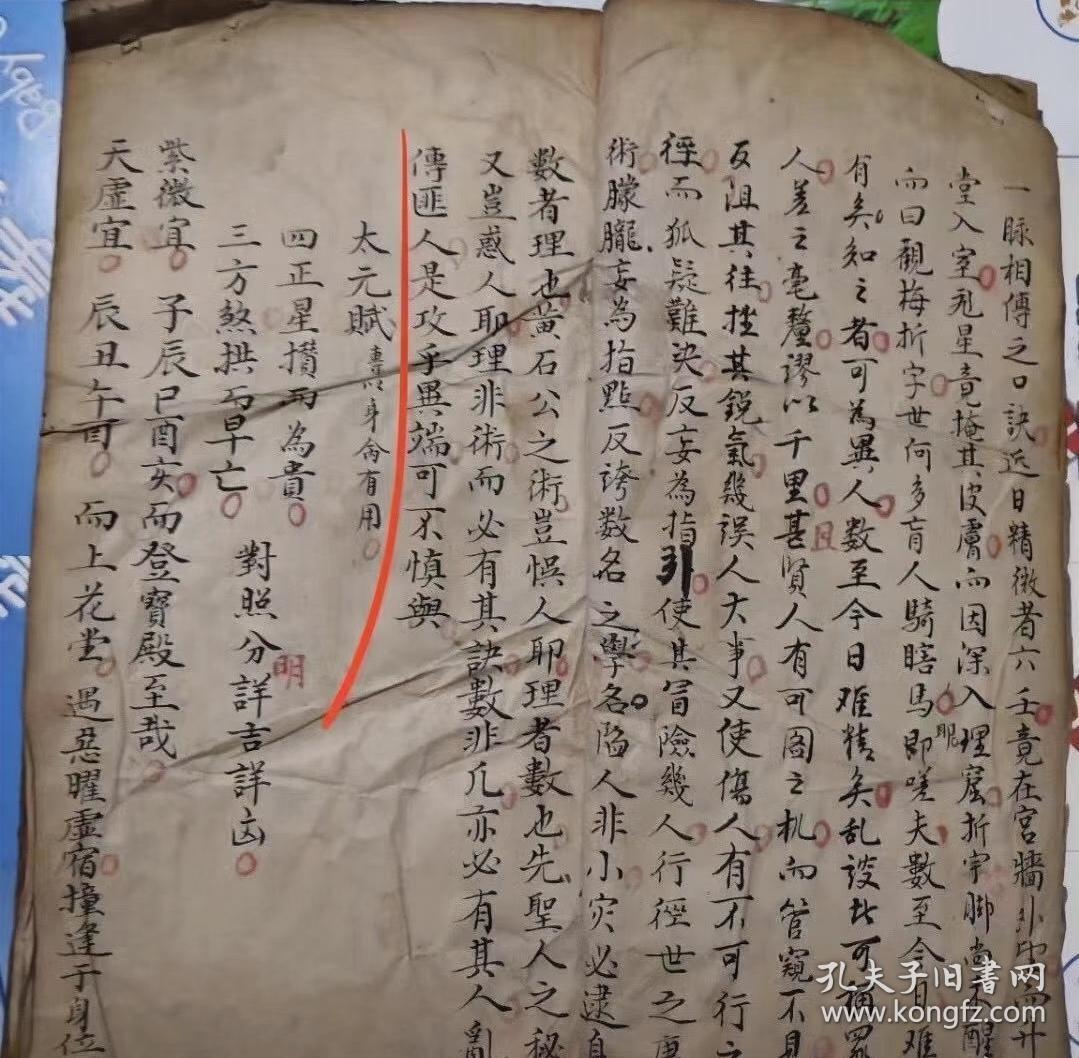 一脉相傳之口訣近日精微者六壬竟在宮牆外
堂入室飛星竟掩其皮膚而因深入理窟折字脚尚不醒
而曰觀梅折字世何多盲人騎瞎馬即嗟夫數至今日难
眼
有矣知之者可為異人數至今日难精矣乱談
人差之毫釐謬以千里甚賢人有可圖之机而管窺不見
且
反阻其往挫其鋭氣幾誤人大事又使傷人有不可行之
徑而狐疑難决反妄為指引使其冒險幾人行徑世之
術朦朧妄為指點反誇数名之學名陷人非小灾必逮自
數者理也黄石公之術豈悞人耶理者數也先聖人之秘
又豈惑人耶理非術而必有其訣數非凡亦必有其人亂
傳匪人是攻乎異端可不慎與
太元賦 身命有用
四正星攢而為貴
三方煞拱而早亡 對照分詳吉詳凶
明
紫微宜 子辰巳酉亥而登寶殿至哉
天虛宜 辰丑午酉 而上花堂 遇惡曜虛宿撞逢于身位
孔夫子旧書网
www.kongfz.com
Baby